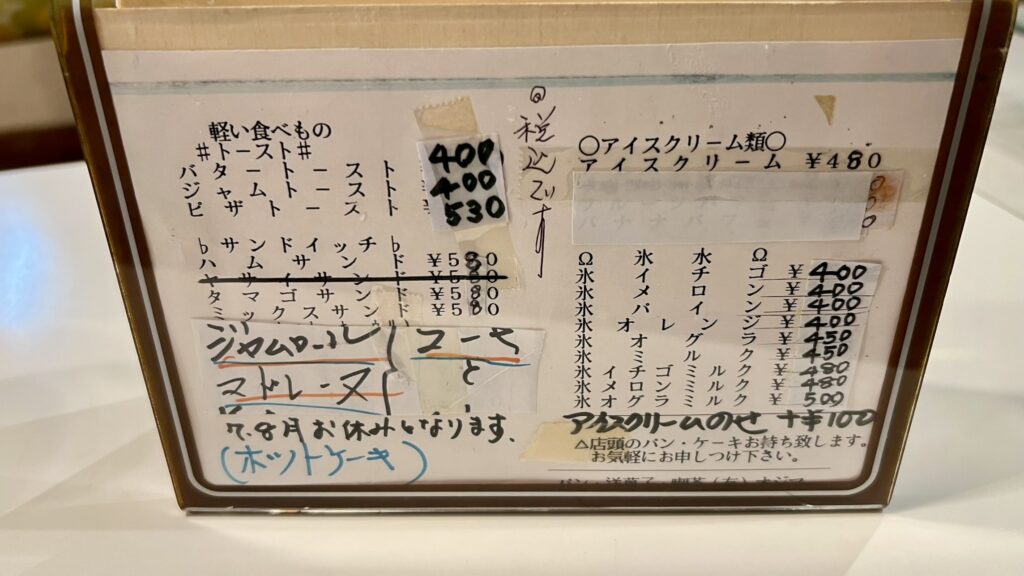 軽い食べもの
#トースト#
バタートースト 400
ジャムトースト 400
ピザトースト ¥530
♭サンドイッチ♭
ハムサンド ¥580
タマゴサンド ¥580
ミックスサンド ¥580
ジャムロール
マドレーヌ
コーヒ
と
7.8月お休みとなります。
(ホットケーキ)
税込です
○アイスクリーム類○
アイスクリーム ¥480
Ω氷水Ω
氷イチゴ ¥400
氷メロン ¥400
氷パイン ¥400
氷オレンジ ¥400
氷オグラ ¥450
氷ミルク ¥450
氷イチゴミルク ¥480
氷メロンミルク ¥480
氷オグラミルク ¥500
アイスクリームのせ +¥100
△店頭のパン・ケーキお持ち致します。
お気軽にお申しつけ下さい。
パン・洋菓子・喫茶(有)